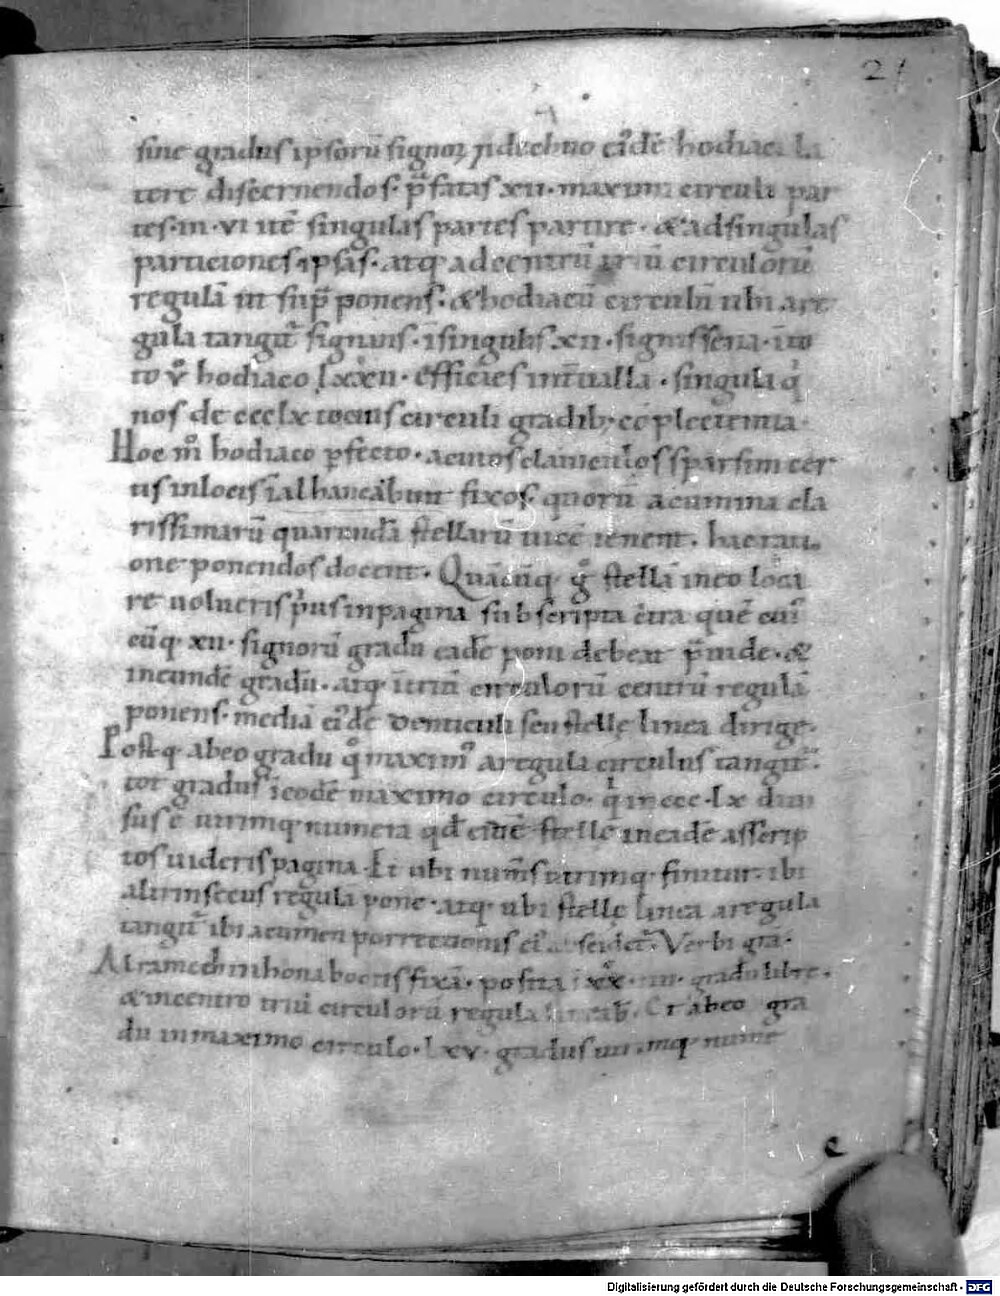 21
sine gradus ipsorū signoꝝ hodiaci la
tere discernendos. p̄fatas xii. maximi circuli par
tes. in. vi itē singulas partes partire. & ad singulas
particiones ipsas. atq ad centrū triū circulorū
regulā in sup̄ ponens. & hodiacū circulū ubi are
gula tangit᷑ signans. ī singulis. xii. signis sena. ī to
to v̊ hodiaco lxxii. efficies int̄ualla. singula q̇
nos de ccclx tocius circuli gradib; cōplectentia.
Hoc m̊ hodiaco ꝑfecto. acutos clauiculos sparsim cer
tis in locis ī alhancabut fixos. quorū acumina cla
rissimarū quarundā stellarū uicē tenent. hac rati
one ponendos docent. Quācūq. g̊ stellā in eo loca
re uolueris p̓us in pagina subscripta c̄tra quē cui᷒
cūq. xii. signorū gradū eadē poni debeat p̄uide. &
in eundē gradū. atq. ī triū circulorū centrū regulā
ponens. mediā ei᷒dē denticuli seu stellę linea dirige.
Postq. ab eo gradu q̊ maxim᷒ a regula circulus tangit᷑.
tot gradus ī eodē maximo circulo. q̇ in ccc. lx diui
sus ē utrimq numera qđ c̄tuē stellē in eadē asscrip
tos uideris pagina. Et ubi num̄s utrimq. finitur. ibi
altrinsecus regula pone. atq. ubi stellę linea a regula
tangit᷑ ibi acumen porrectionis Verbi grā.
Alramech in bona bootis fixā. posita gradu libre.
& in centro triū circulorū regula Et ab eo gra
du in maximo circulo. lxv. gradus utrimq nume
c
Digitalisierung gefördert durch die Deutsche Forschungsgemeinschaft - DFG